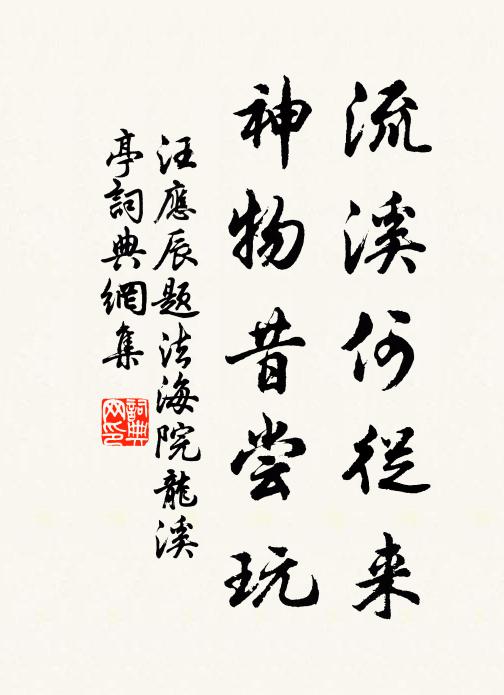 流溪何從来
神物昔尝玩
汪應辰題法海院龍溪
亭詞典網集
詞典
网印